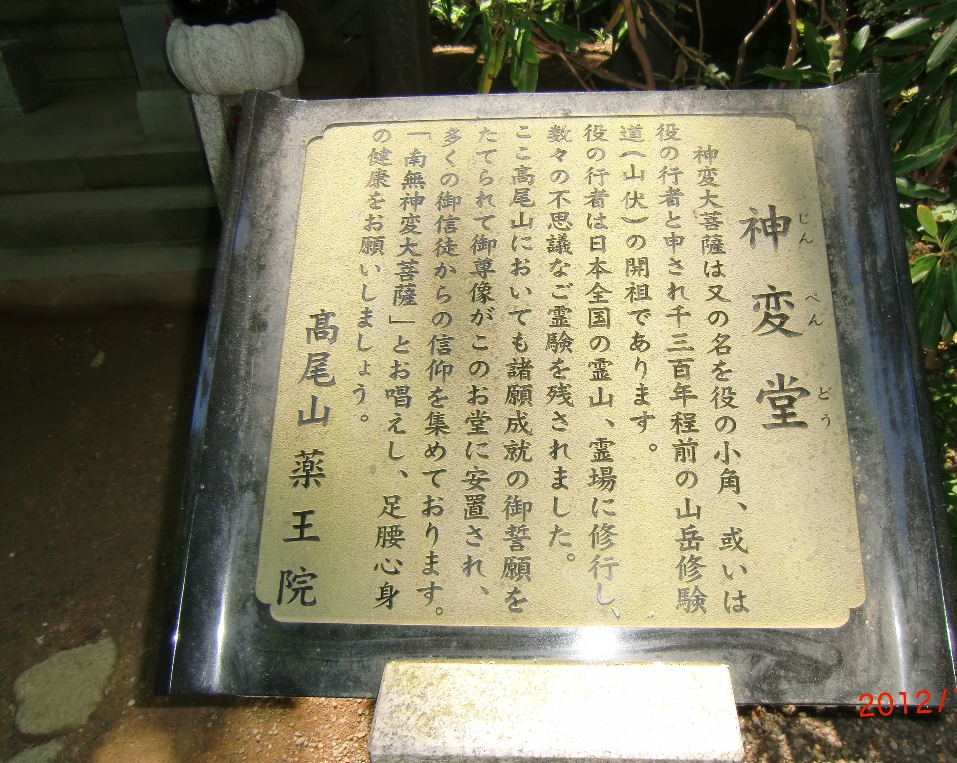 神変堂
じんぺんどう
神変大菩薩は又の名を役の小角、或いは
役の行者と申され千三百年程前の山岳修験
道(山伏)の開祖であります。
役の行者は日本全国の霊山、霊場に修行し、
数々の不思議なご霊験を残されました。
ここ高尾山においても諸願成就の御誓願を
たてられて御尊像がこのお堂に安置され、
多くの御信徒からの信仰を集めております。
「南無神変大菩薩」とお唱えし、足腰心身
の健康をお願いしましょう。
髙尾山薬王院
2012/